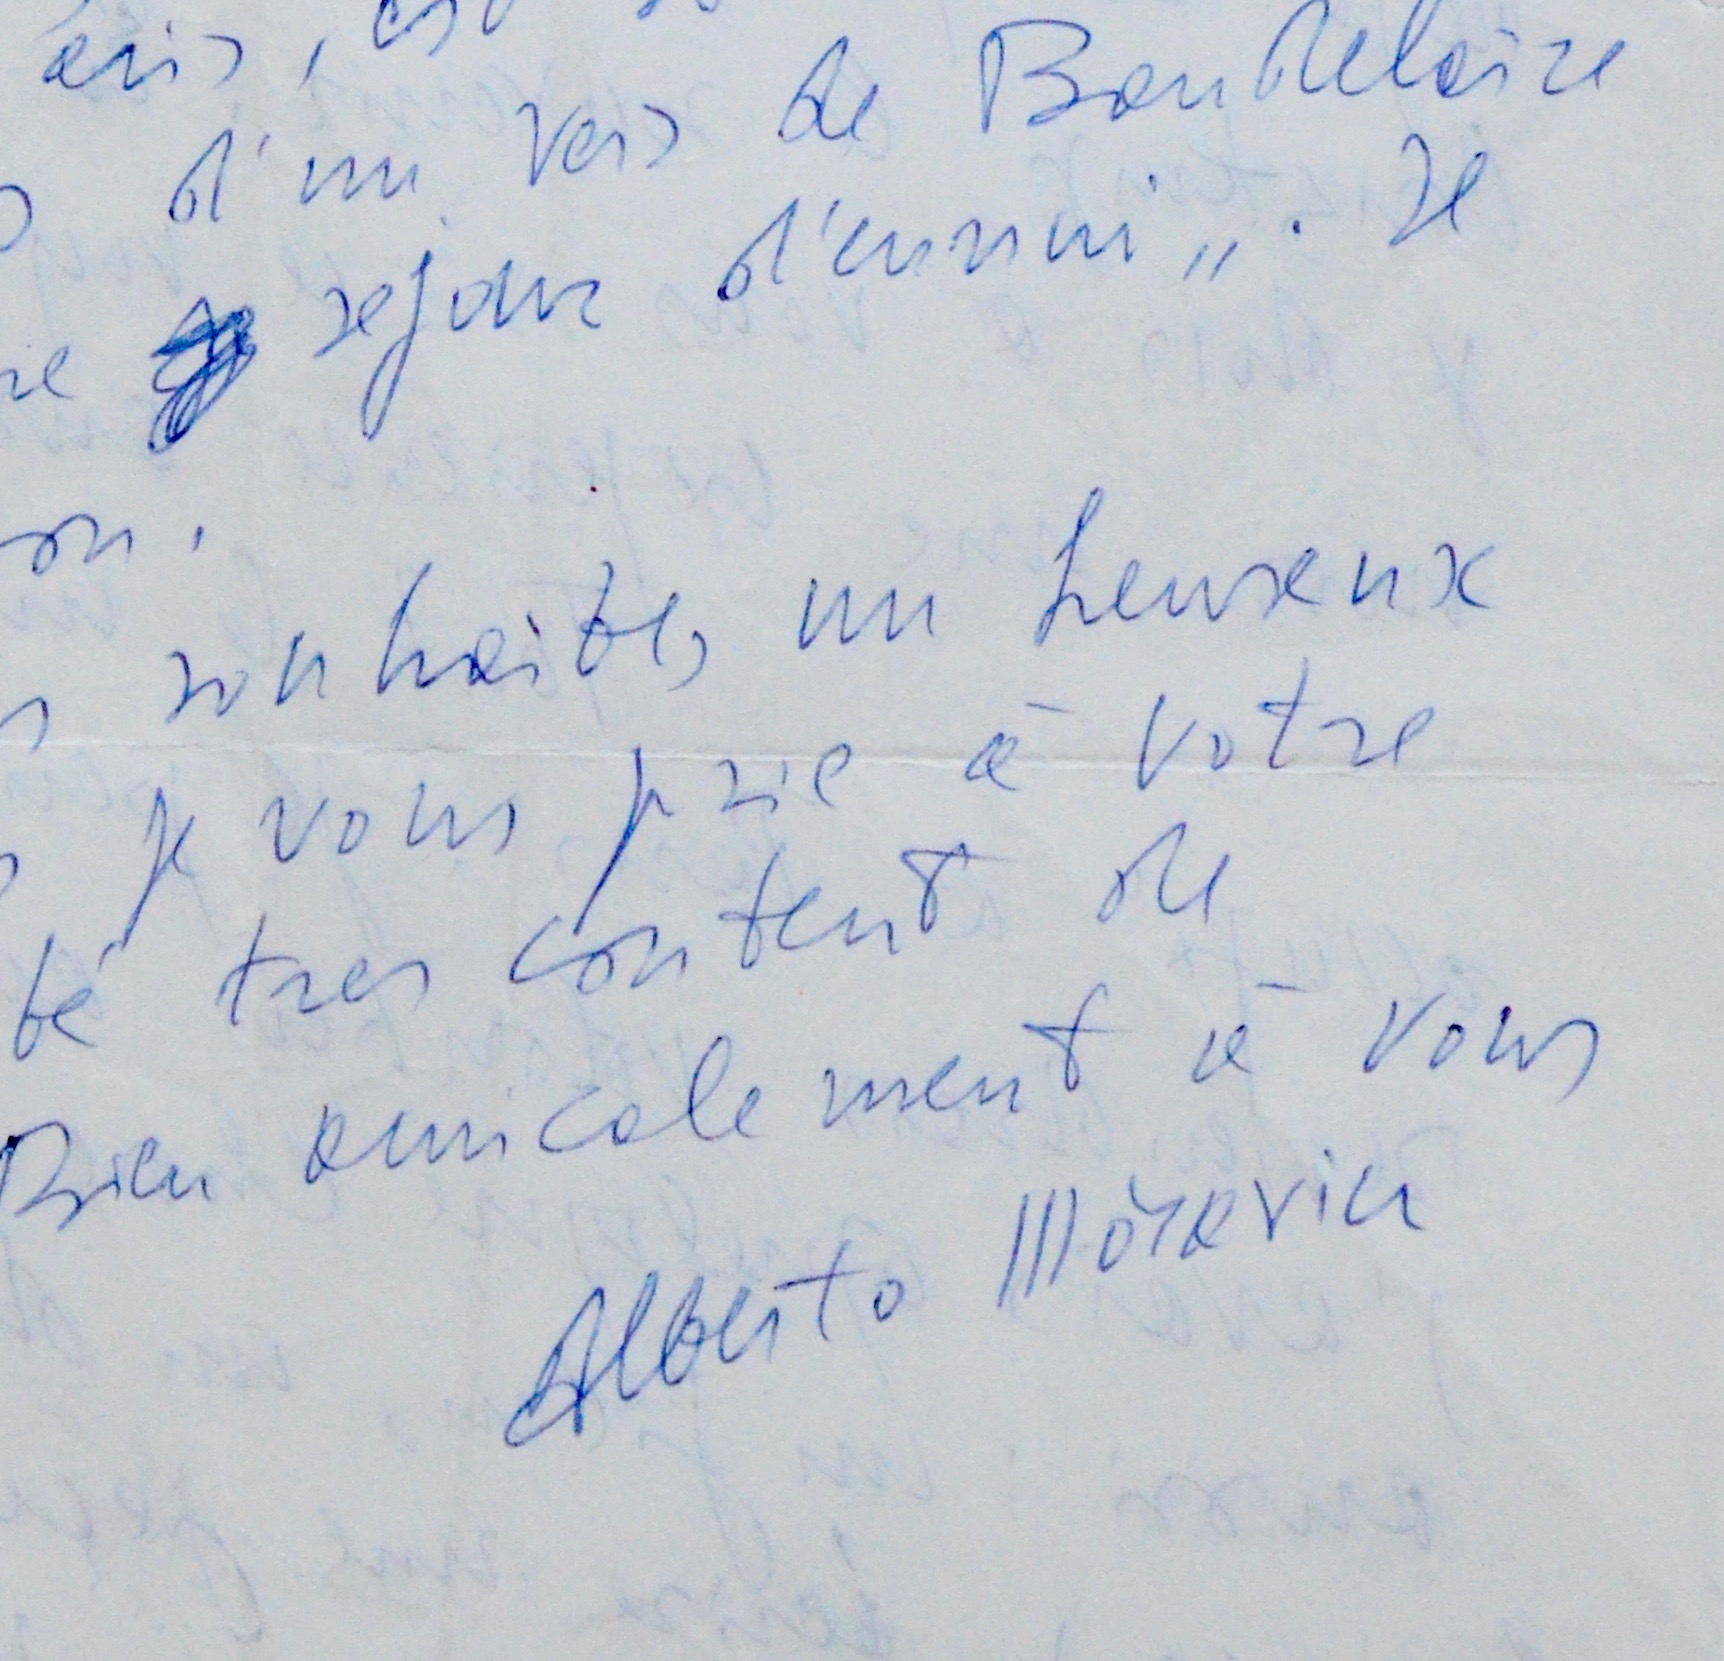 d'un vers de Baudelaire
sejour d'ennui„. Je
souhaite, un heureux
je vous prie à votre
té tres content de
Bien amicalement à vous
Alberto Moravia